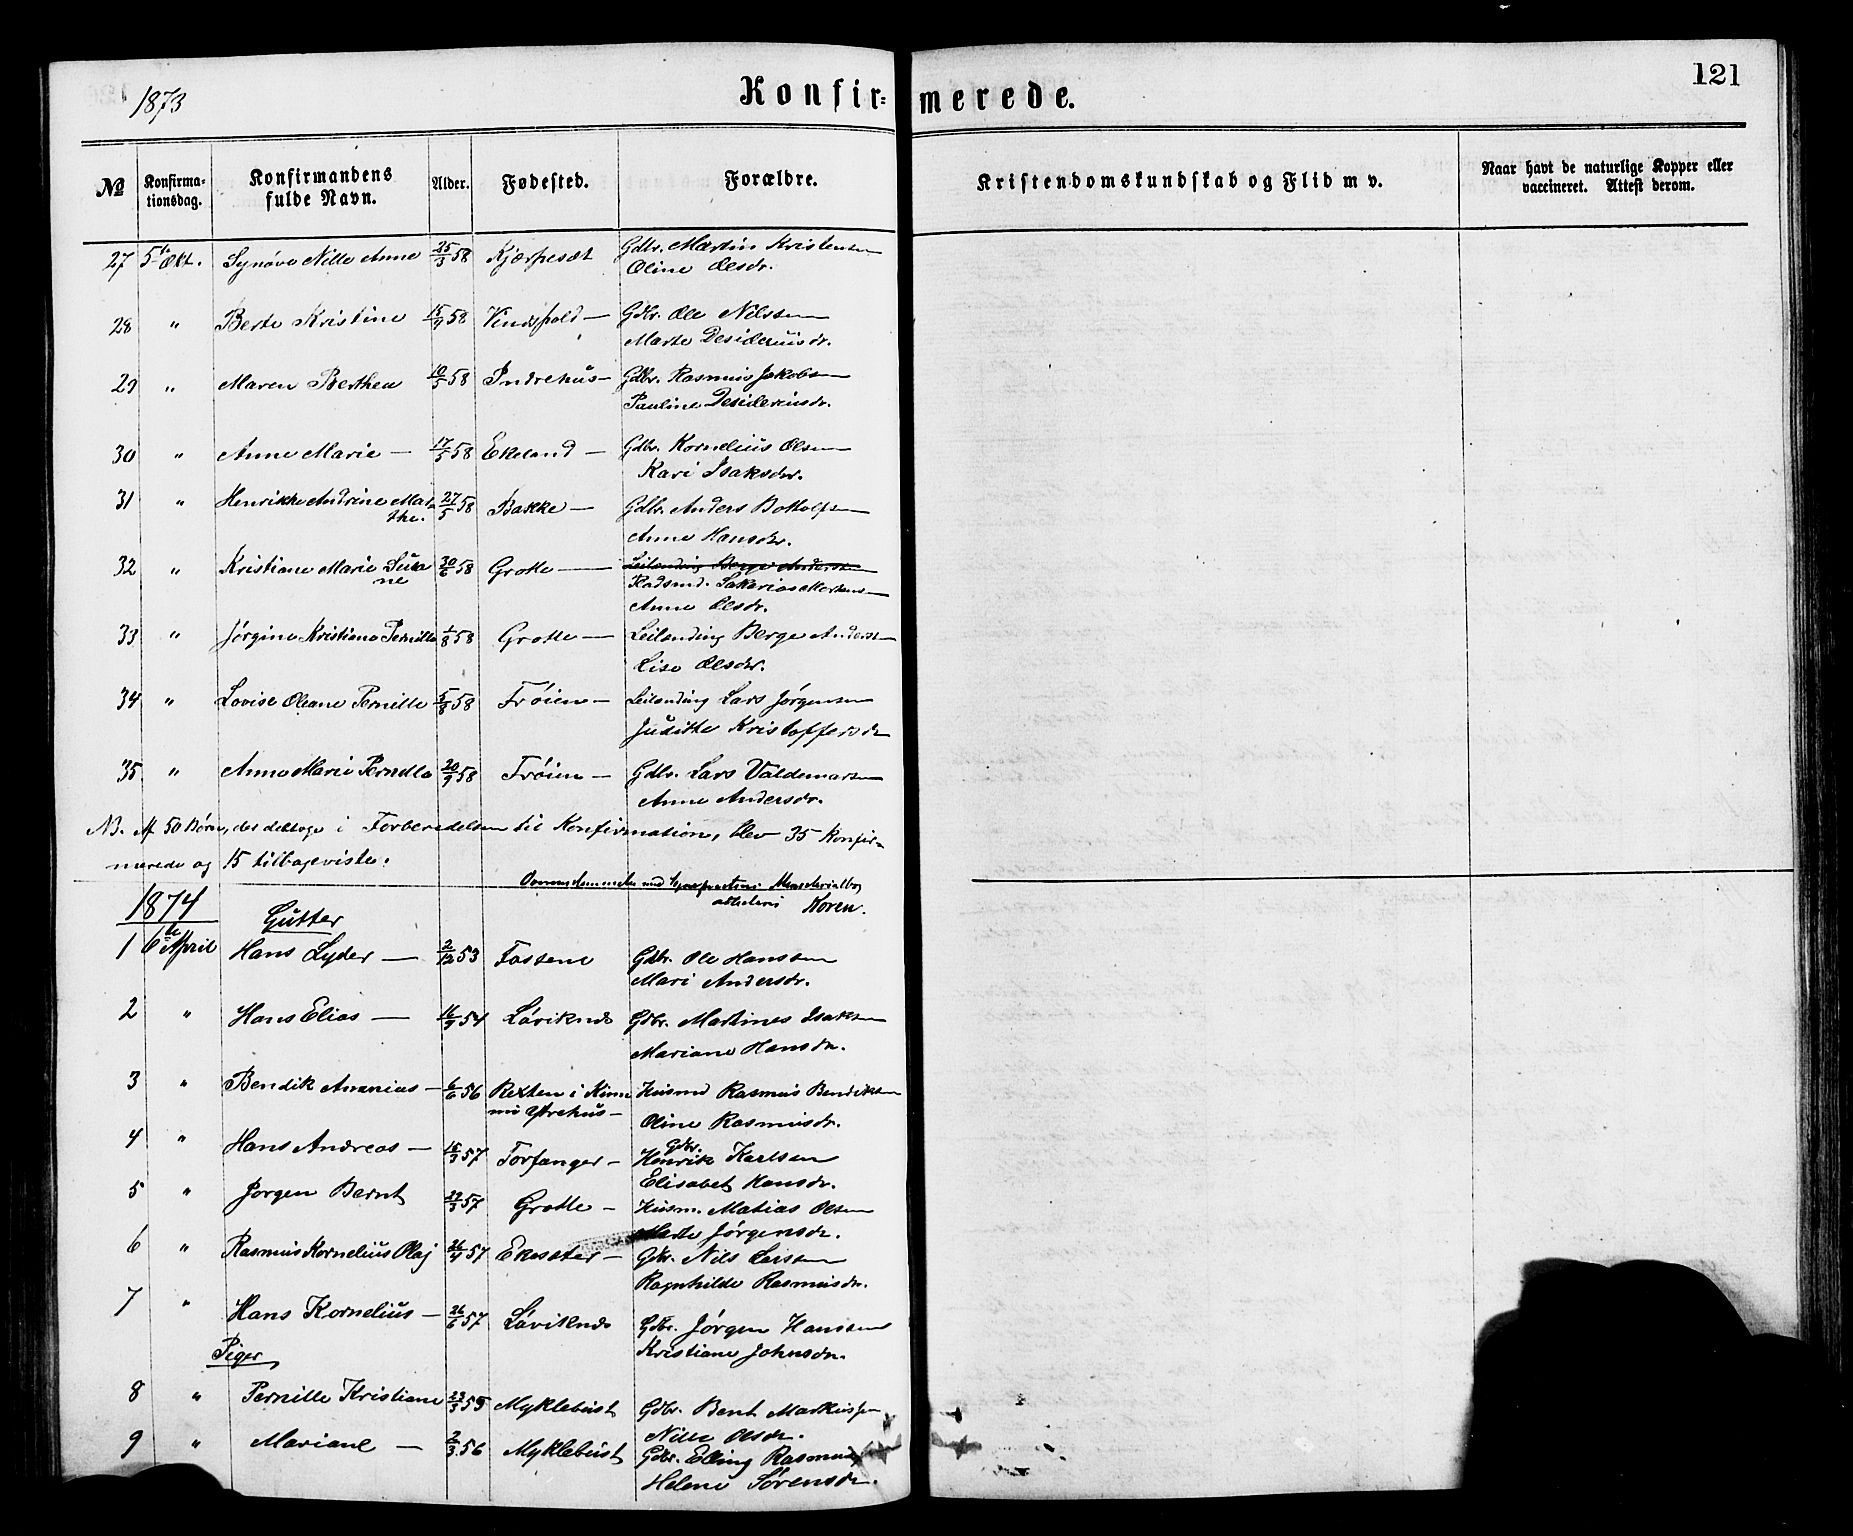 1873
Konfir=
merede.
121
No
Konfirma-
tionsdag.
Konfirmandens
fulde Navn.
Alder.
Fødested.
Forældre.
Kristendomskundskab og Flid m v.
Naar havt de naturlige Kopper eller
vaccineret. Attest derom.
27 5te Okt. Synøve Nille Anne 25/3 58 Kjærpesæt Gdbr. Martin Kristensen
Oline Olsdr.
28 " Berte Kristine 15/9 58 Vindspold — Gdbr. Ole Nilssen
Marte Desideriusdr.
29 " Maren Berthea 10/5 58 Indrehus — Gdbr. Rasmus Jakobsen
Pauline Desideriusdr.
30 " Anne Marie — 17/5 58 Ekeland — Gdbr. Kornelius Olsen
Kari Isaksdr.
31 " Henrikke Andrine Mar= 27/5 58 Bakke — Gdbr. Anders Botholfsen
the. Anne Hansdr.
32 " Kristiane Marie Susa 30/6 58 Grotle — Leilending Berge Anderssen
ne Pladsmd. Sakarias Martens
Anne Olsdr.
33 " Jørgine Kristiane Pernille 1/8 58 Grotle — Leilending Berge Anderss
Lise Olsdr.
34 " Lovise Oleane Pernille 5/8 58 Frøien — Leilending Lars Jørgensen
Judithe Kristoffersdr
35 " Anne Marie Pernille 20/9 58 Frøien — Gdbr. Lars Valdemarsen
Anne Andersdr.
NB. Af 50 Børn, der deltoge i Forberedelsen til Konfirmation, blev 35 Konfir=
merede og 15 tilbageviste.
Ministerialbog
Koren.
1874
Gutter
1 6te April Hans Lyder — 2/12 53 Fossene Gdbr. Ole Hanssen
Mari Andersdr.
2 " Hans Elias — 16/9 54 Løviknes Gdbr. Martines Isaksen
Mariane Hansdr.
3 " Bendik Ananias — 6/6 56 Rexten i Kinn Husmd Rasmus Bendiksen
nu Ytrehus — Oline Rasmusdr.
4 " Hans Andreas — 15/3 57 Torfanger — Gdbr. Henrik Karlsen
Elisabet Hansdr.
5 " Jørgen Bernt 29/3 57 Grotle — Husm. Matias Olsen
Marte Jørgensdr.
6 " Rasmus Kornelius Olaj 26/4 57 Ekesæter — Gdbr. Nils Larssen
Ragnhilde Rasmusdr.
7 " Hans Kornelius — 26/6 57 Løviknes Gdbr. Jørgen Hanssen
Kristiane Johnsdr.
Piger
8 " Pernille Kristiane 23/3 55 Myklebust Gdbr. Bent Markussen
Nille Olsdr.
9 " Mariane — 2/3 56 Myklebust Gdbr. Elling Rasmus
Helene Sørensdr.